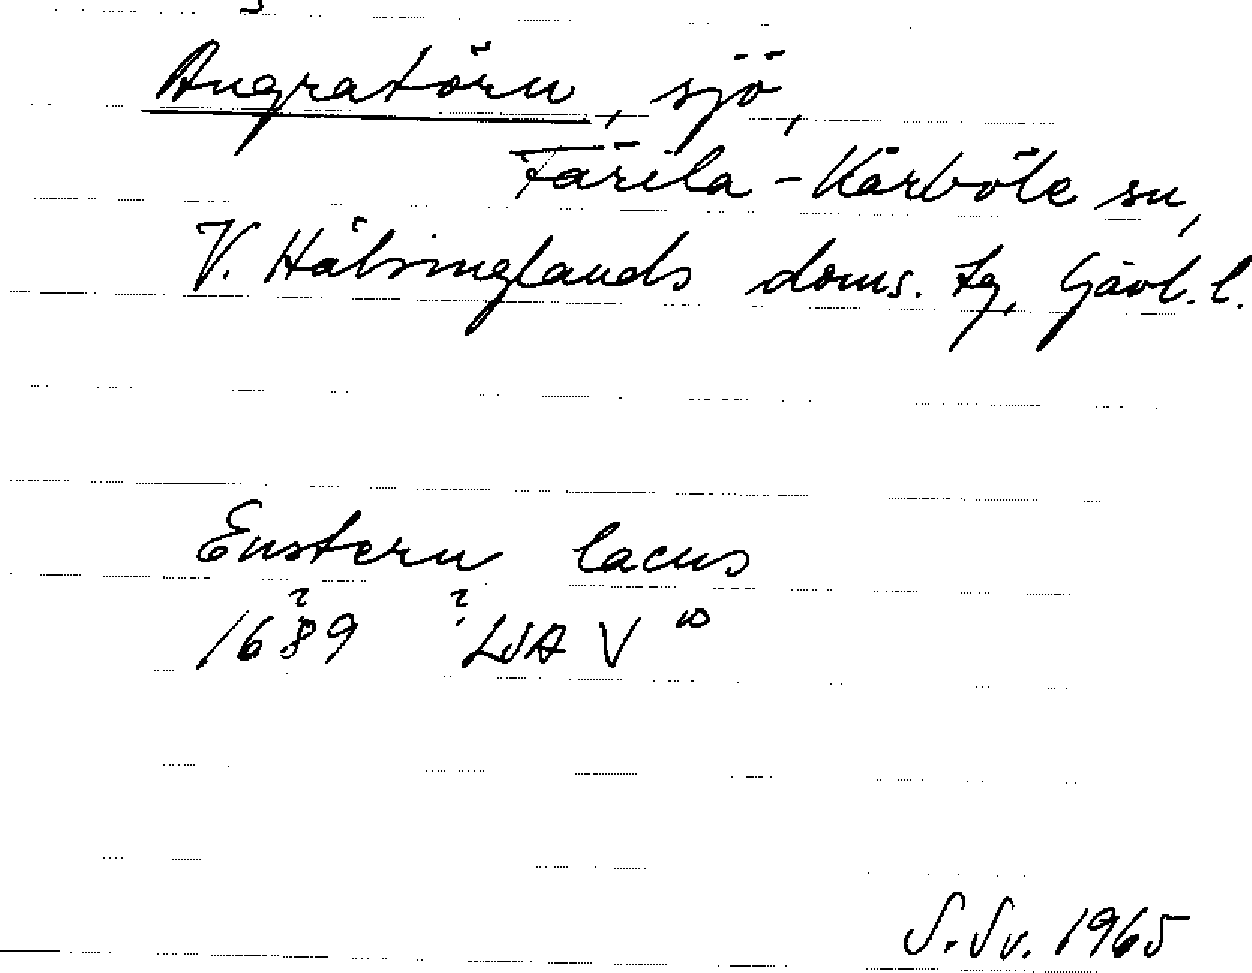 Angratörn, sjö,
Färila - Kårböle sn,
V. Hälsinglands doms. tg, Gävl. l.
Enstern lacus
1689 LSA V
S. Sv. 1965